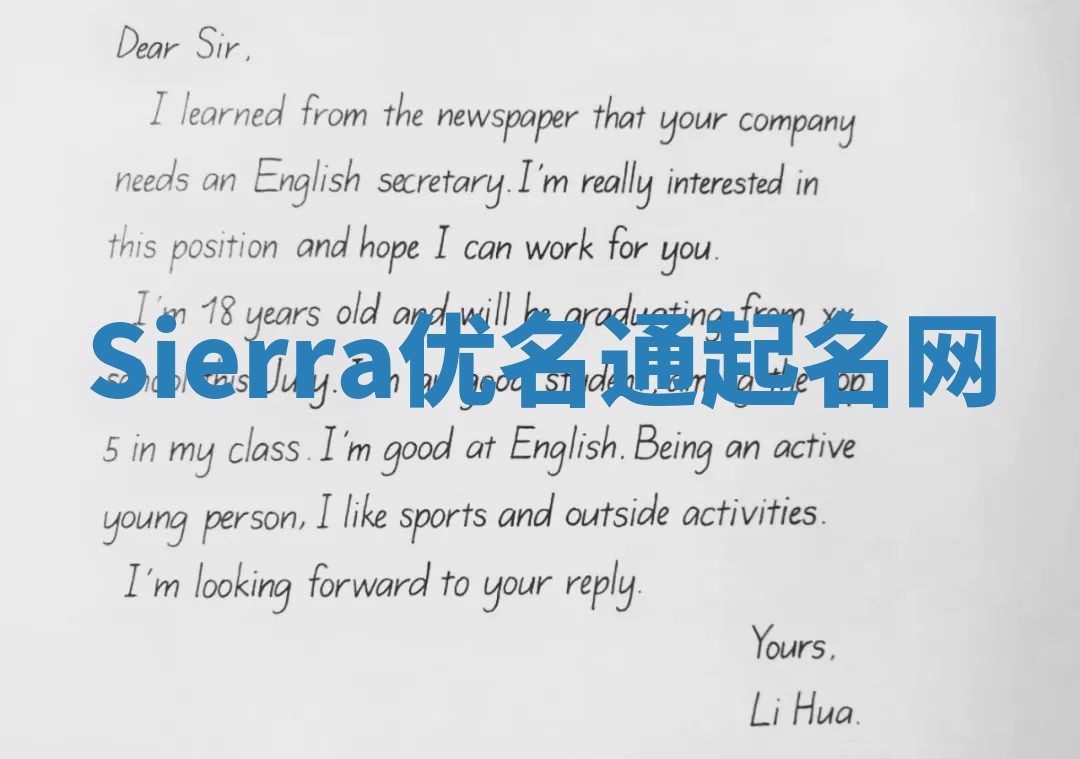 Dear Sir,
I learned from the newspaper that your company
needs an English secretary. I'm really interested in
this position and hope I can work for you.
I'm 18 years old and will be graduating from xx
Sierra优名通起名网
school this July. I'm a good student, among the top
5 in my class. I'm good at English. Being an active
young person, I like sports and outside activities.
I'm looking forward to your reply.
Yours,
Li Hua.